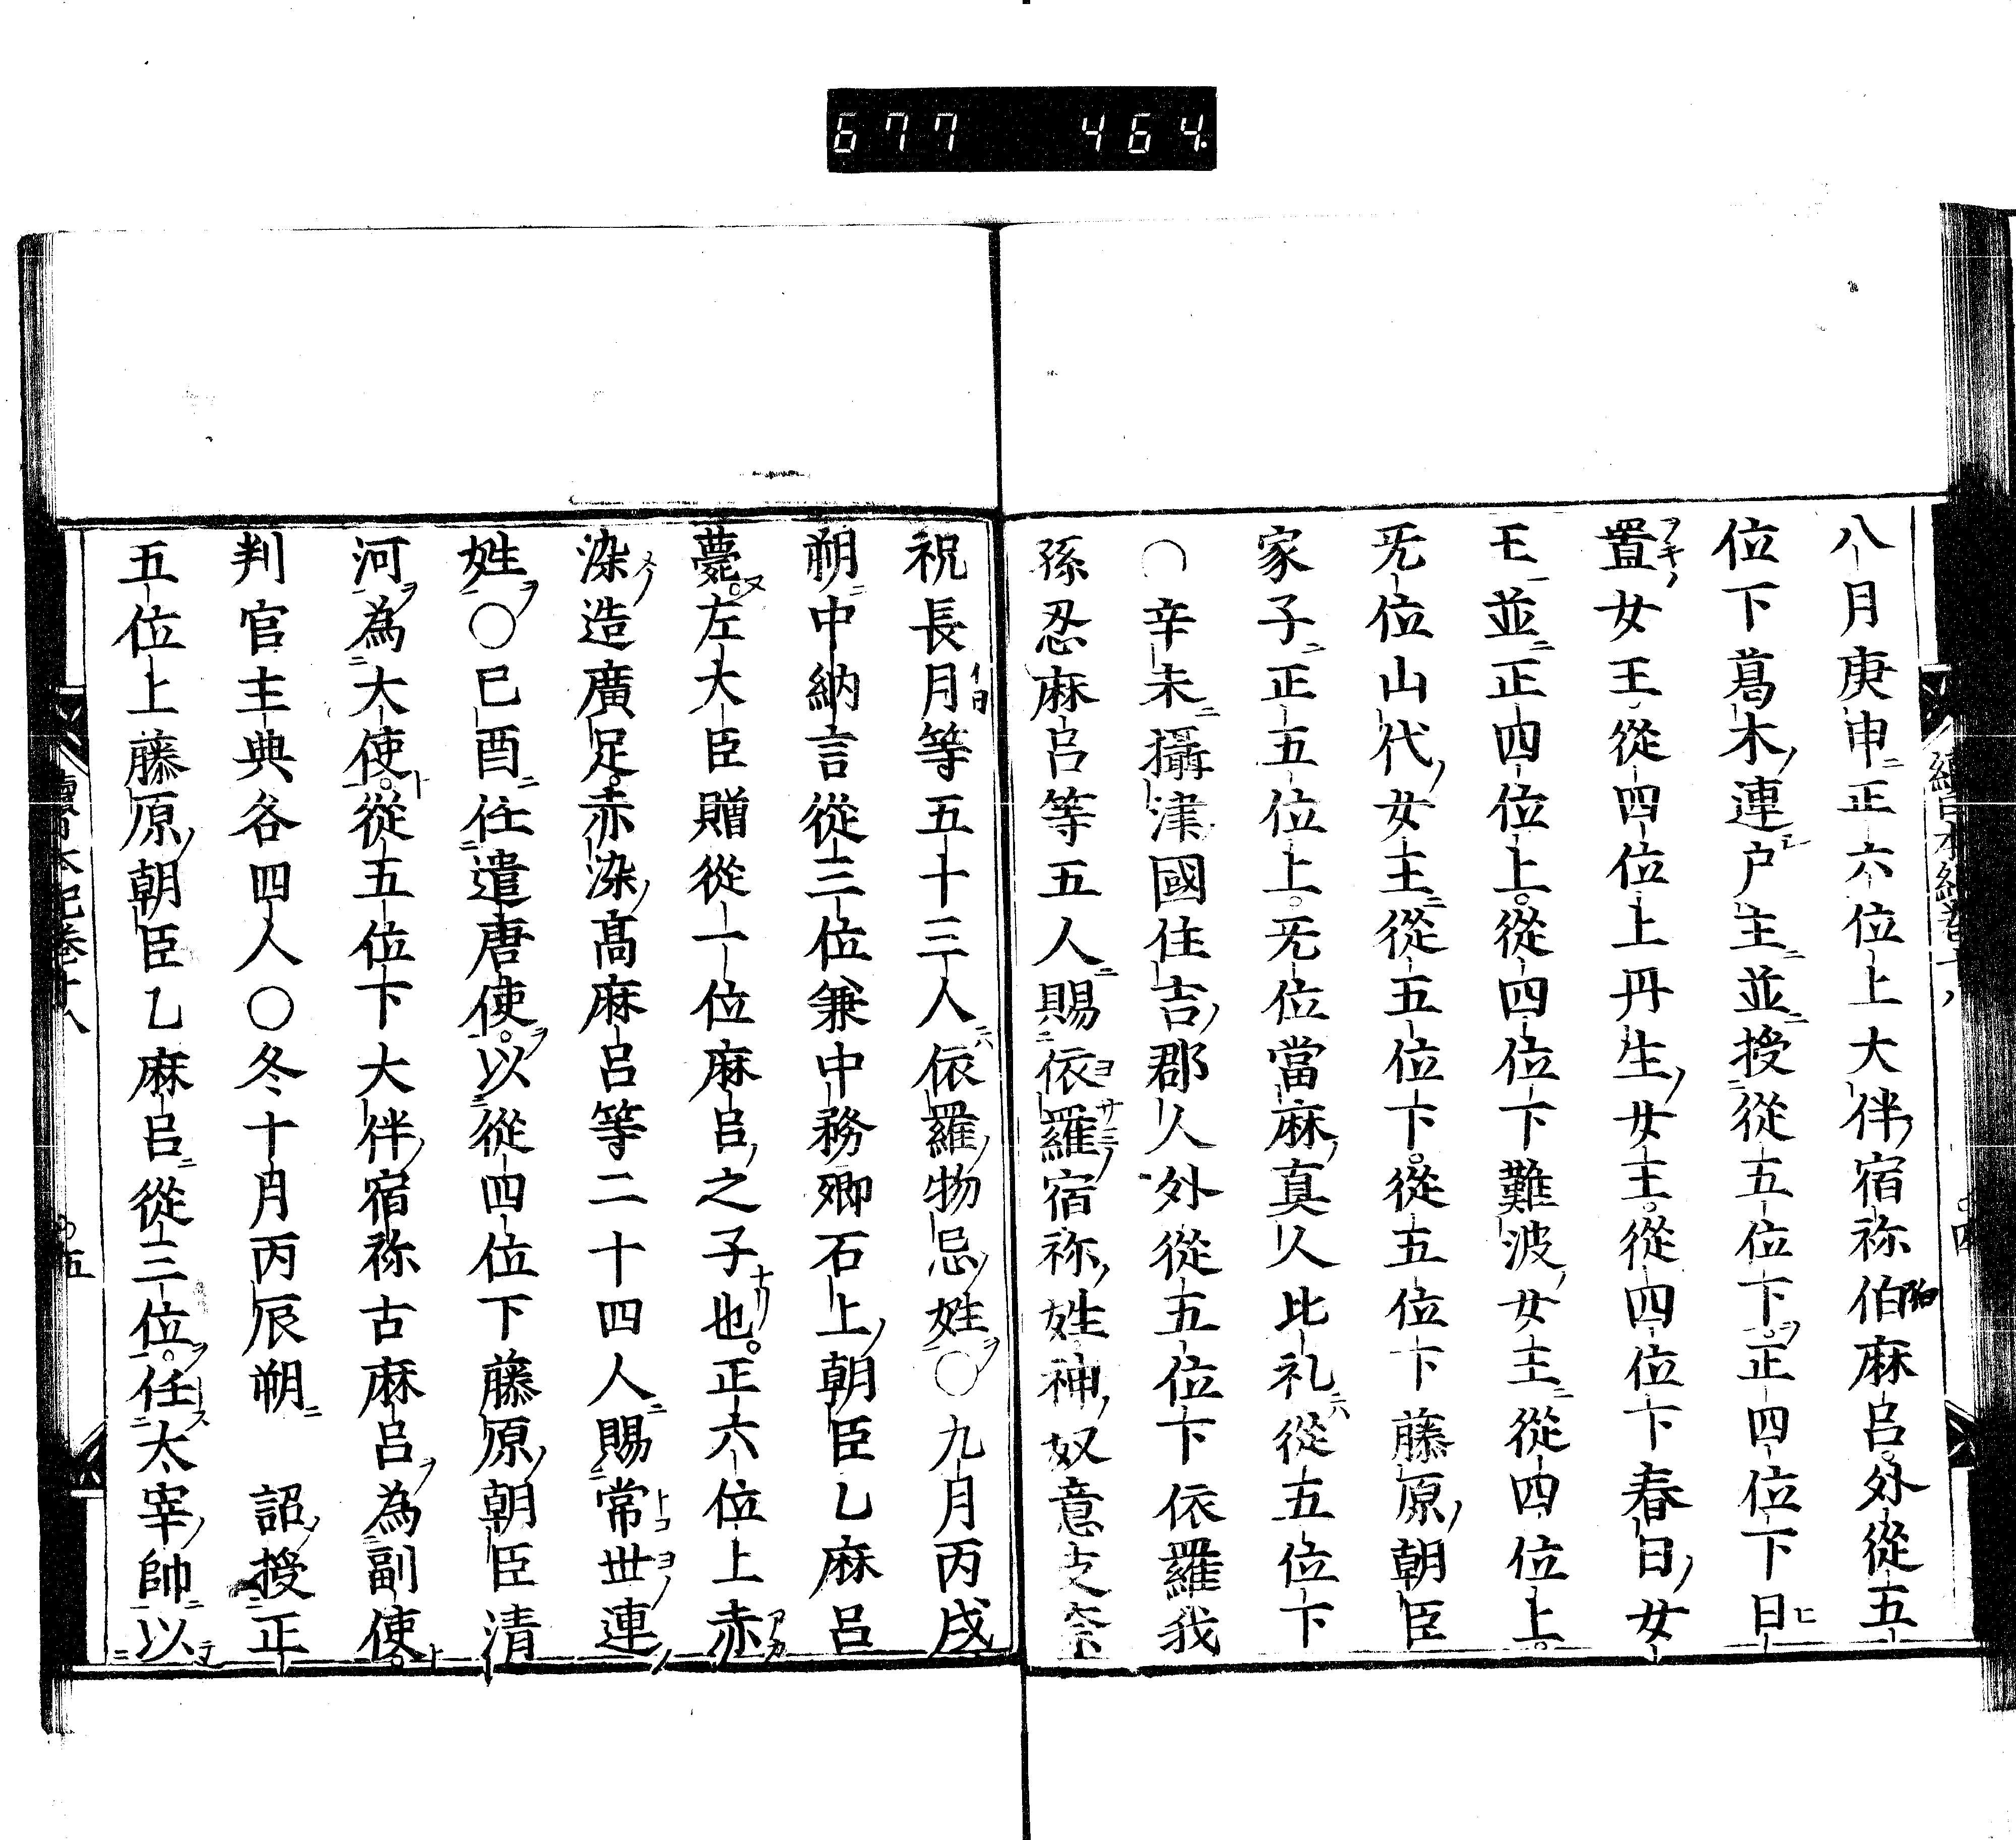 677 464.
八月庚申正六位上大伴宿祢伯麻呂。外從五
位下葛木連戸主並授從五位下。正四位下日
置女王從四位上丹生女王。從四位下春日女
王並正四位上。從四位下難波女王從四位上。
无位山代女王從五位下。從五位下藤原朝臣
家子正五位上。无位當麻真人比礼從五位下
○辛未攝津國住吉郡人外從五位下依羅我
孫忍麻呂等五人賜依羅宿祢姓神奴意支奈
祝長月等五十三人依羅物忌姓○九月丙戌
朔中納言從三位兼中務卿石上朝臣乙麻呂
薨。左大臣贈從一位麻呂之子也。正六位上赤
染造廣足。赤染髙麻呂等二十四人賜常丗連
姓○己酉任遣唐使。以從四位下藤原朝臣清
河為大使。從五位下大伴宿祢古麻呂為副使。
判官主典各四人○冬十月丙辰朔 詔授正
五位上藤原朝臣乙麻呂從三位。任太宰帥以